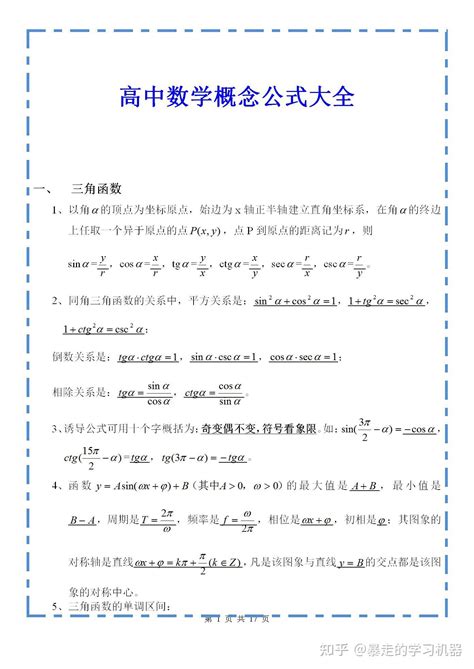 高中数学概念公式大全
一、 三角函数
1、以角α的顶点为坐标原点，始边为 x 轴正半轴建立直角坐标系，在角α的终边
上任取一个异于原点的点P(x, y)，点 P 到原点的距离记为r，则
sin α = y/r，cos α = x/r，tg α = y/x，ctg α = x/y，sec α = r/x，csc α = r/y。
2、同角三角函数的关系中，平方关系是：sin² α + cos² α = 1，1 + tg² α = sec² α，
1 + ctg² α = csc² α；
倒数关系是：tgα · ctgα = 1，sin α · csc α = 1，cos α · sec α = 1；
相除关系是：tgα = sin α/cos α，ctgα = cos α/sin α。
3、诱导公式可用十个字概括为：奇变偶不变，符号看象限。如：sin(3π/2 − α) = −cos α，
ctg(15π/2 − α) = tgα，tg(3π − α) = −tgα。
4、函数 y = A sin(ωx + φ) + B（其中A > 0，ω > 0）的最大值是 A + B，最小值是
B − A，周期是T = 2π/ω，频率是 f = ω/2π，相位是ωx + φ，初相是φ；其图象的
对称轴是直线ωx + φ = kπ + π/2 (k ∈ Z)，凡是该图象与直线 y = B 的交点都是该图
象的对称中心。
5、三角函数的单调区间：
第 1 页 共 17 页
知乎 @暴走的学习机器